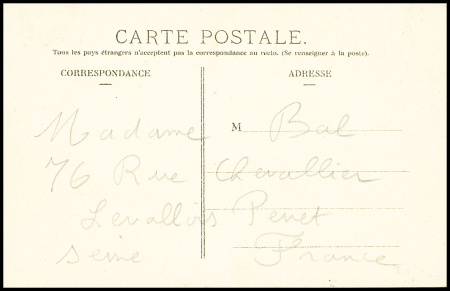 CARTE POSTALE.
Tous les pays étrangers n'acceptent pas la correspondance au recto. (Se renseigner à la poste).
CORRESPONDANCE ADRESSE
Madame M Bal
76 Rue Chevallier
Levallois Perret
Seine France